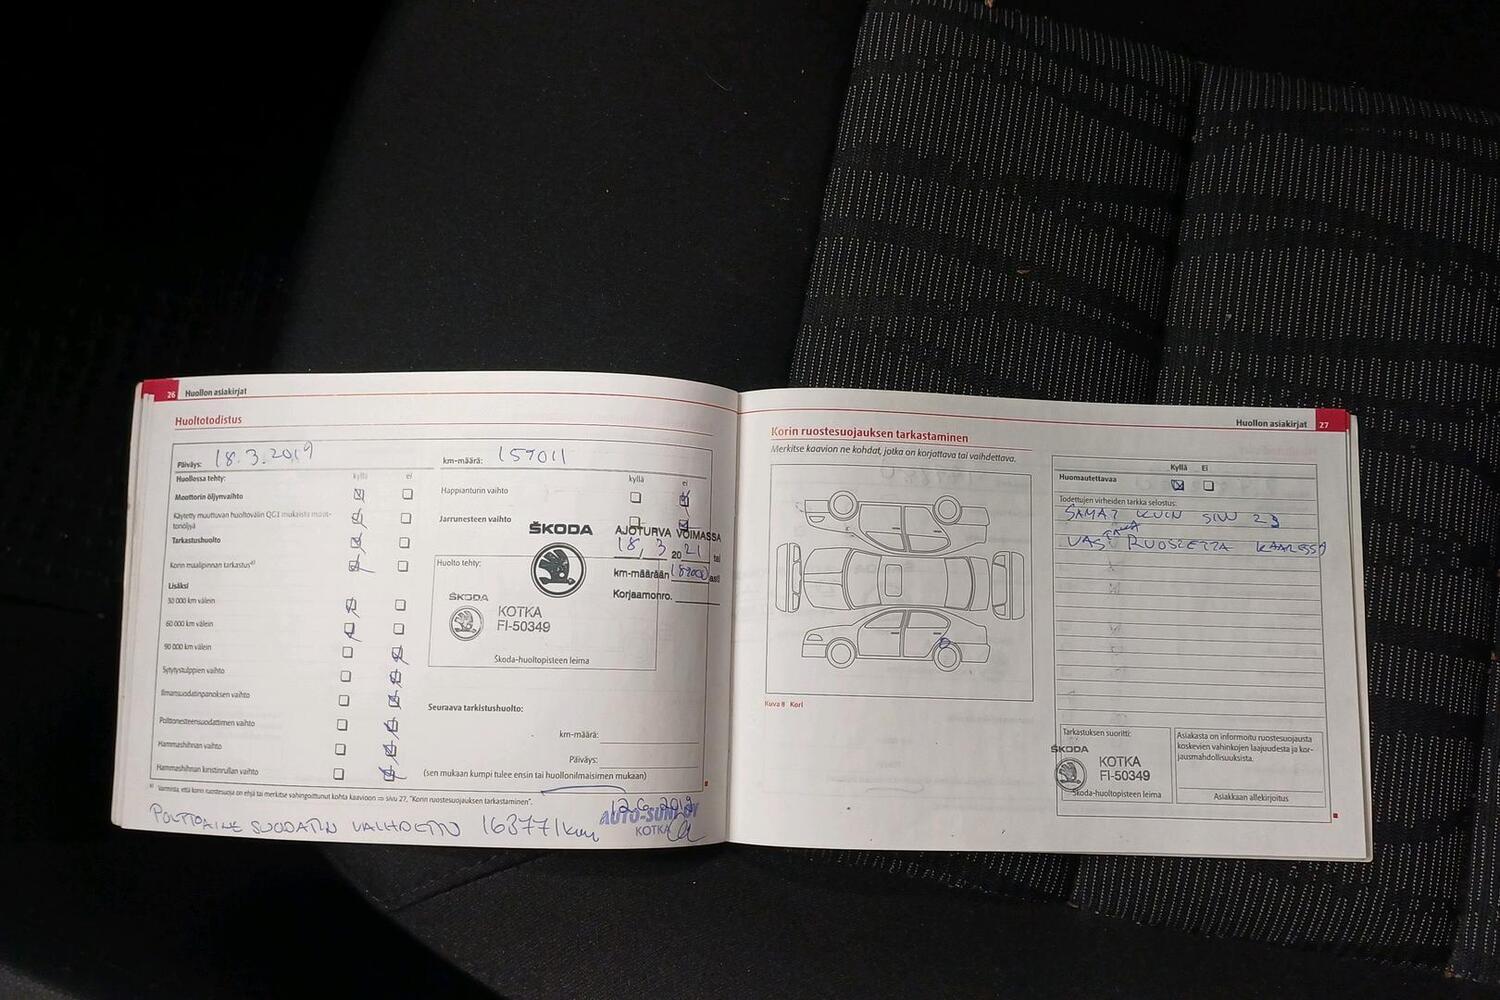 26 Huollon asiakirjat
Huoltotodistus
Päiväys: 18.3.2019
km-määrä: 159011
Huollossa tehty:
kyllä ei
Moottorin öljynvaihto
Käytetty muuttuvan huoltovälin QG1 mukaista moot-
toriöljyä
Tarkastushuolto
Korin maalipinnan tarkastus a)
Lisäksi
30 000 km välein
60 000 km välein
90 000 km välein
Sytytystulppien vaihto
Ilmansuodatinpanoksen vaihto
Polttonesteensuodattimen vaihto
Hammashihnan vaihto
Hammashihnan kiristinrullan vaihto
kyllä ei
Happianturin vaihto
Jarrunesteen vaihto
ŠKODA
AJOTURVA VOIMASSA
18. 3 20 21 tai
km-määrään asti
Korjaamonro.
Huolto tehty:
ŠKODA
KOTKA
FI-50349
Škoda-huoltopisteen leima
Seuraava tarkistushuolto:
km-määrä:
Päiväys:
(sen mukaan kumpi tulee ensin tai huollonilmaisimen mukaan)
a) Varmista, että korin ruostesuoja on ehjä tai merkitse vahingoittunut kohta kaavioon ⇒ sivu 27, "Korin ruostesuojauksen tarkastaminen".
POLTTOAINE SUODATIN VAIHDETTU 163771km
AUTO-SUNI OY
KOTKA
Huollon asiakirjat 27
Korin ruostesuojauksen tarkastaminen
Merkitse kaavion ne kohdat, jotka on korjattava tai vaihdettava.
Kuva 8 Kori
Kyllä Ei
Huomautettavaa
Todettujen virheiden tarkka selostus:
SAMAT KUIN SIVU 23
VAS TAKA RUOSTETTA KAARESSA
Tarkastuksen suoritti:
ŠKODA
KOTKA
FI-50349
Škoda-huoltopisteen leima
Asiakasta on informoitu ruostesuojausta
koskevien vahinkojen laajuudesta ja kor-
jausmahdollisuuksista.
Asiakkaan allekirjoitus